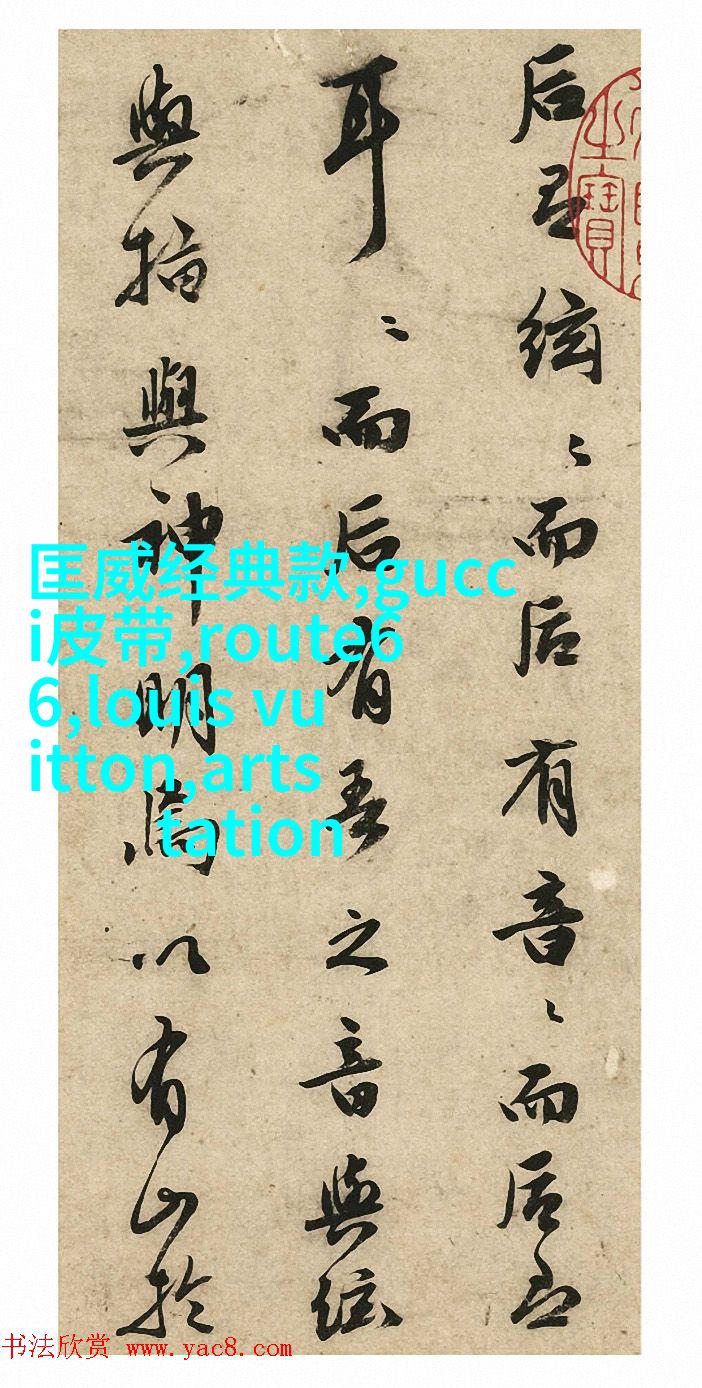 后絃〻而后有音〻而后
耳〻而后有吾之音與絃
與指與神明焉以有於
之寶
匡威经典款,gucc
i皮带,route6
6,louis vu
itton,arts
tation
书法欣赏 www.yac8.com